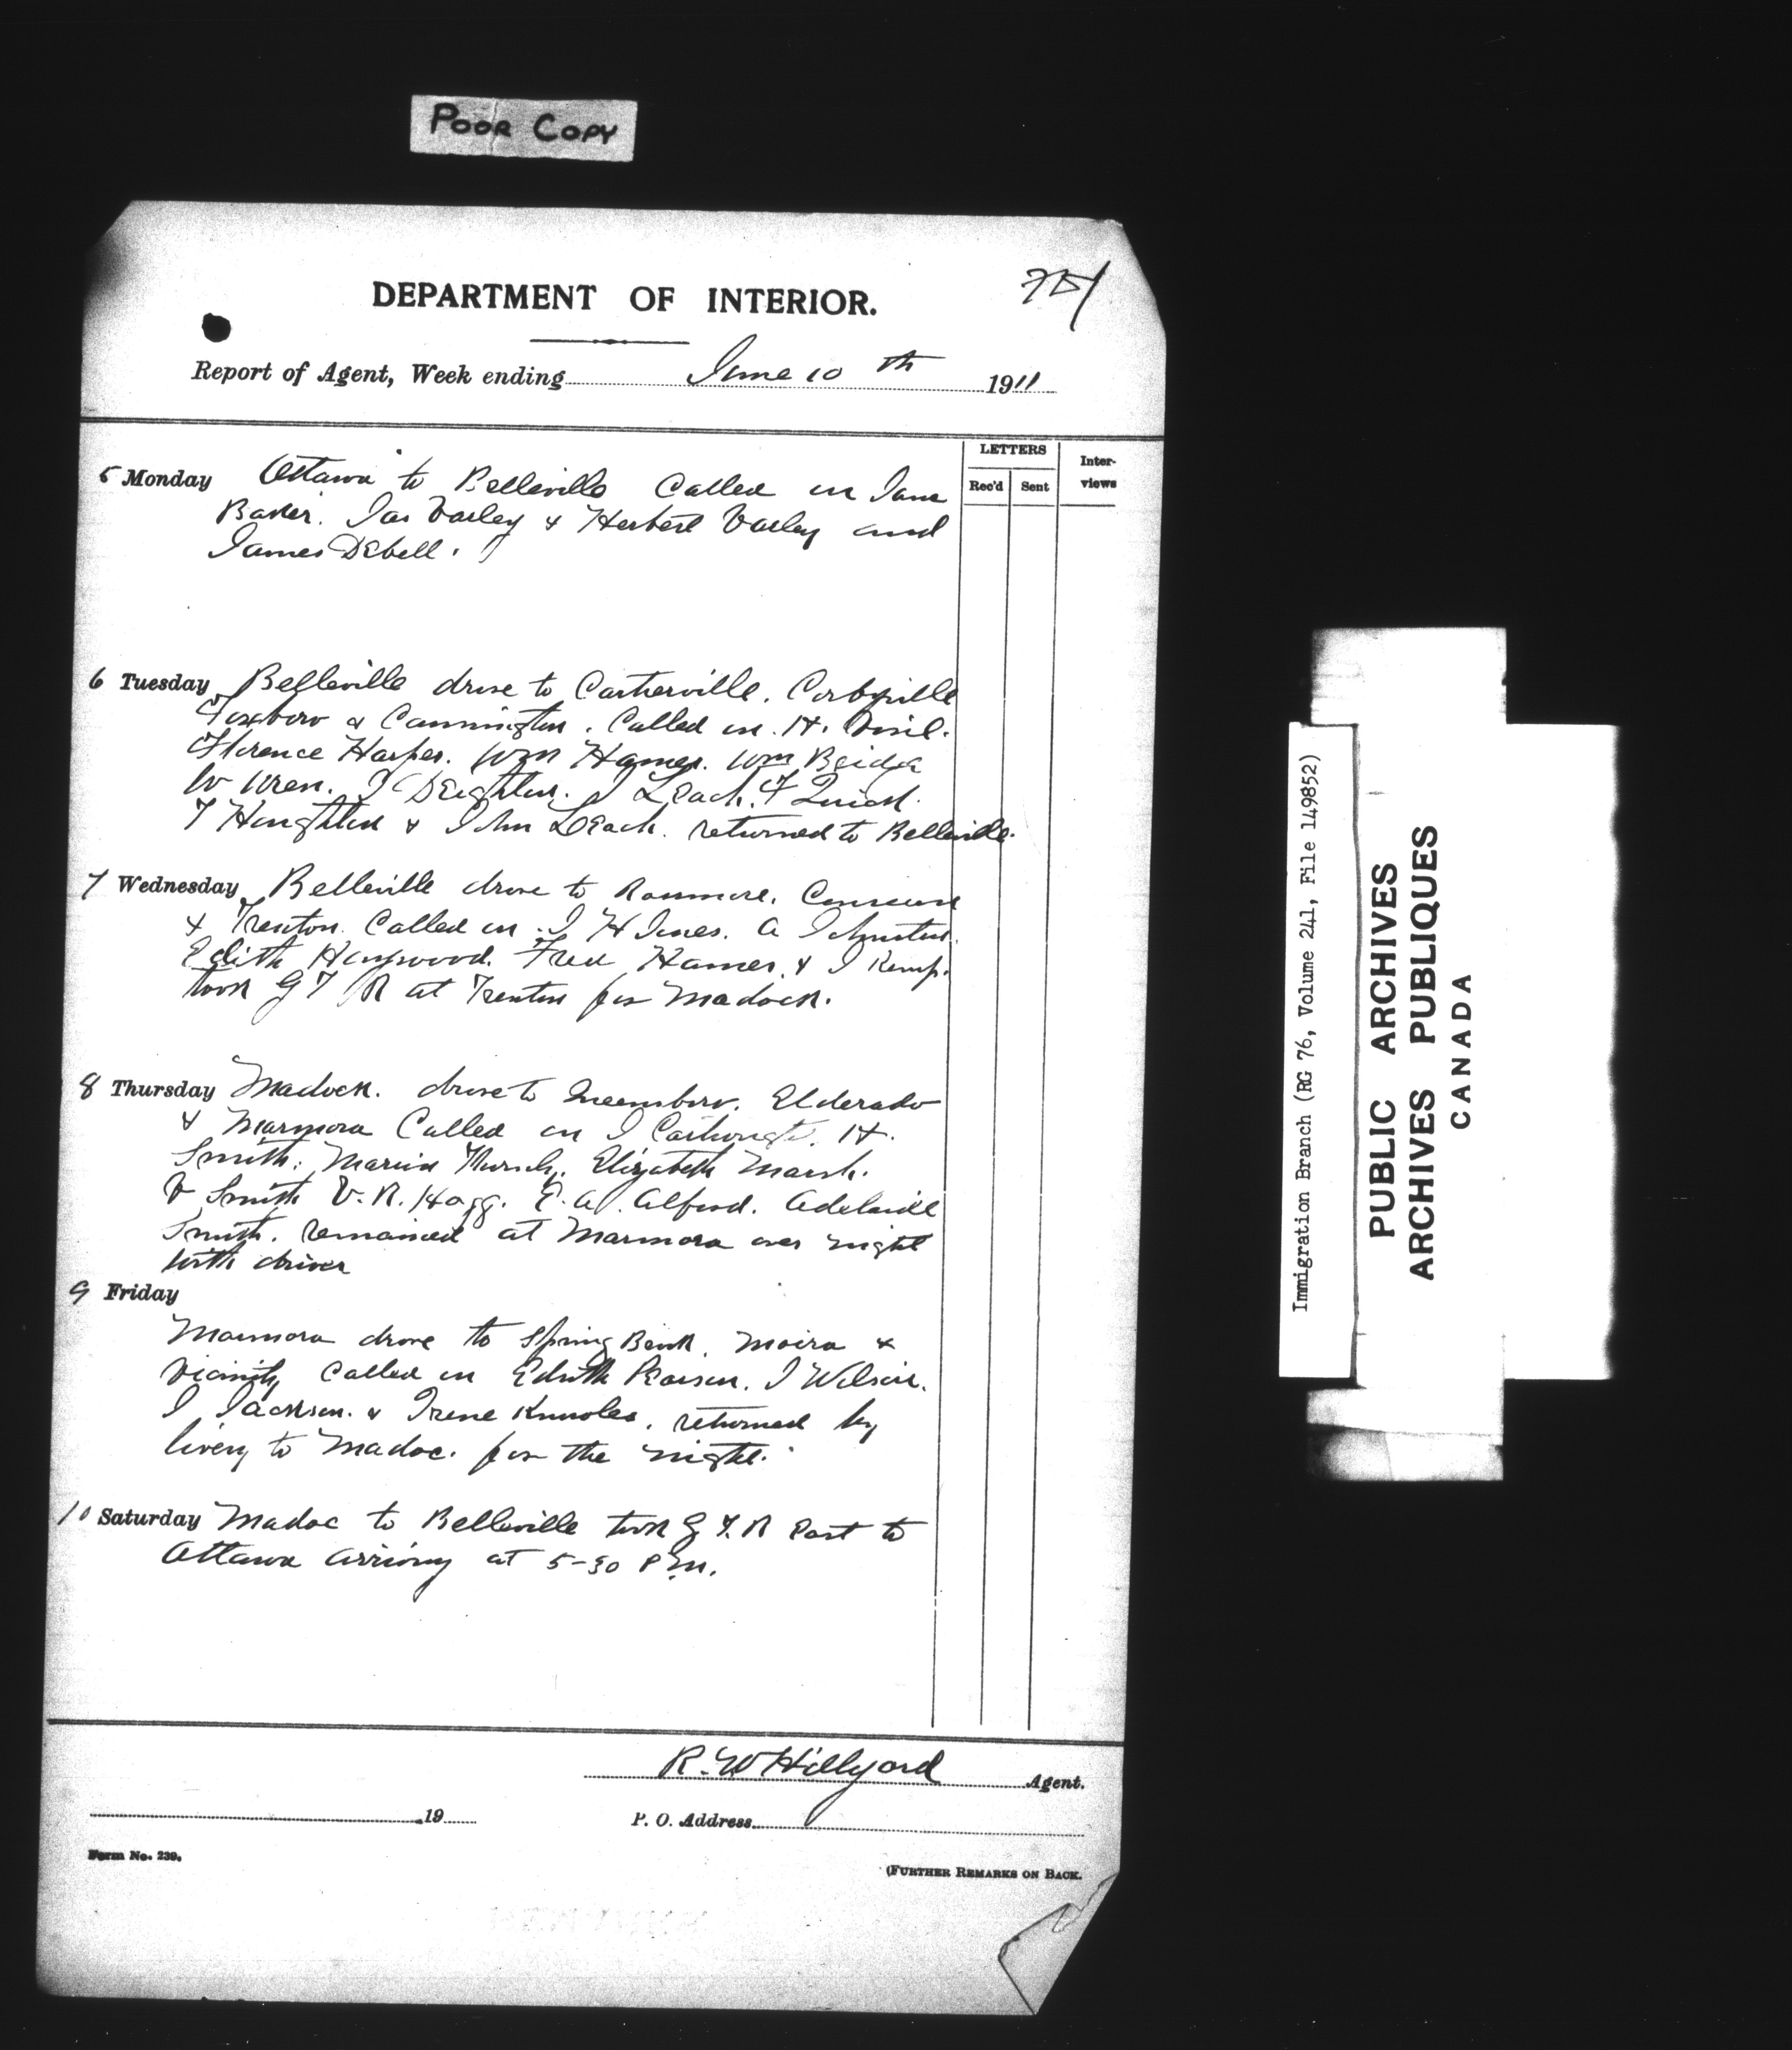 POOR COPY
751
DEPARTMENT OF INTERIOR.
Report of Agent, Week ending June 10 th 1911
LETTERS
Rec'd Sent
Inter-
views
5 Monday Ottawa to Belleville Called on Jane
Baker. Jas Varley & Herbert Varley and
James Debell.
6 Tuesday Belleville drove to Cartierville. Corbyville
Foxboro & Cannington. Called on H.
Florence Harper. Wm Hamer. Wm
W Wren. J Deighton. J Leach. F Quick.
T Houghton & John Leach. returned to Belleville.
7 Wednesday Belleville drove to Rossmore. Consecon
& Trenton. Called on J H Jones. A Johnston.
Edith Haywood. Fred Hamer. & J Kemp.
took G T R at Trenton for Madock.
8 Thursday Madock. drove to Queensboro. Elderado
& Marmora Called on J H.
Smith. Elizabeth Marsh.
V Smith V. R. Hogg. E. A. Alford. Adelaide
Smith. remained at Marmora over night
with driver
9 Friday
Marmora drove to Spring Bank. Moira &
vicinity called on Edith J Wilson.
J Jackson. & Irene Knowles. returned by
livery to Madoc. for the night.
10 Saturday Madoc to Belleville took G T. R East to
Ottawa arriving at 5-30 P.M.
R. W Hillyard Agent.
19
P. O. Address
Form No. 239.
(FURTHER REMARKS ON BACK.
Immigration Branch (RG 76, Volume 241, File 149852)
PUBLIC ARCHIVES
ARCHIVES PUBLIQUES
CANADA